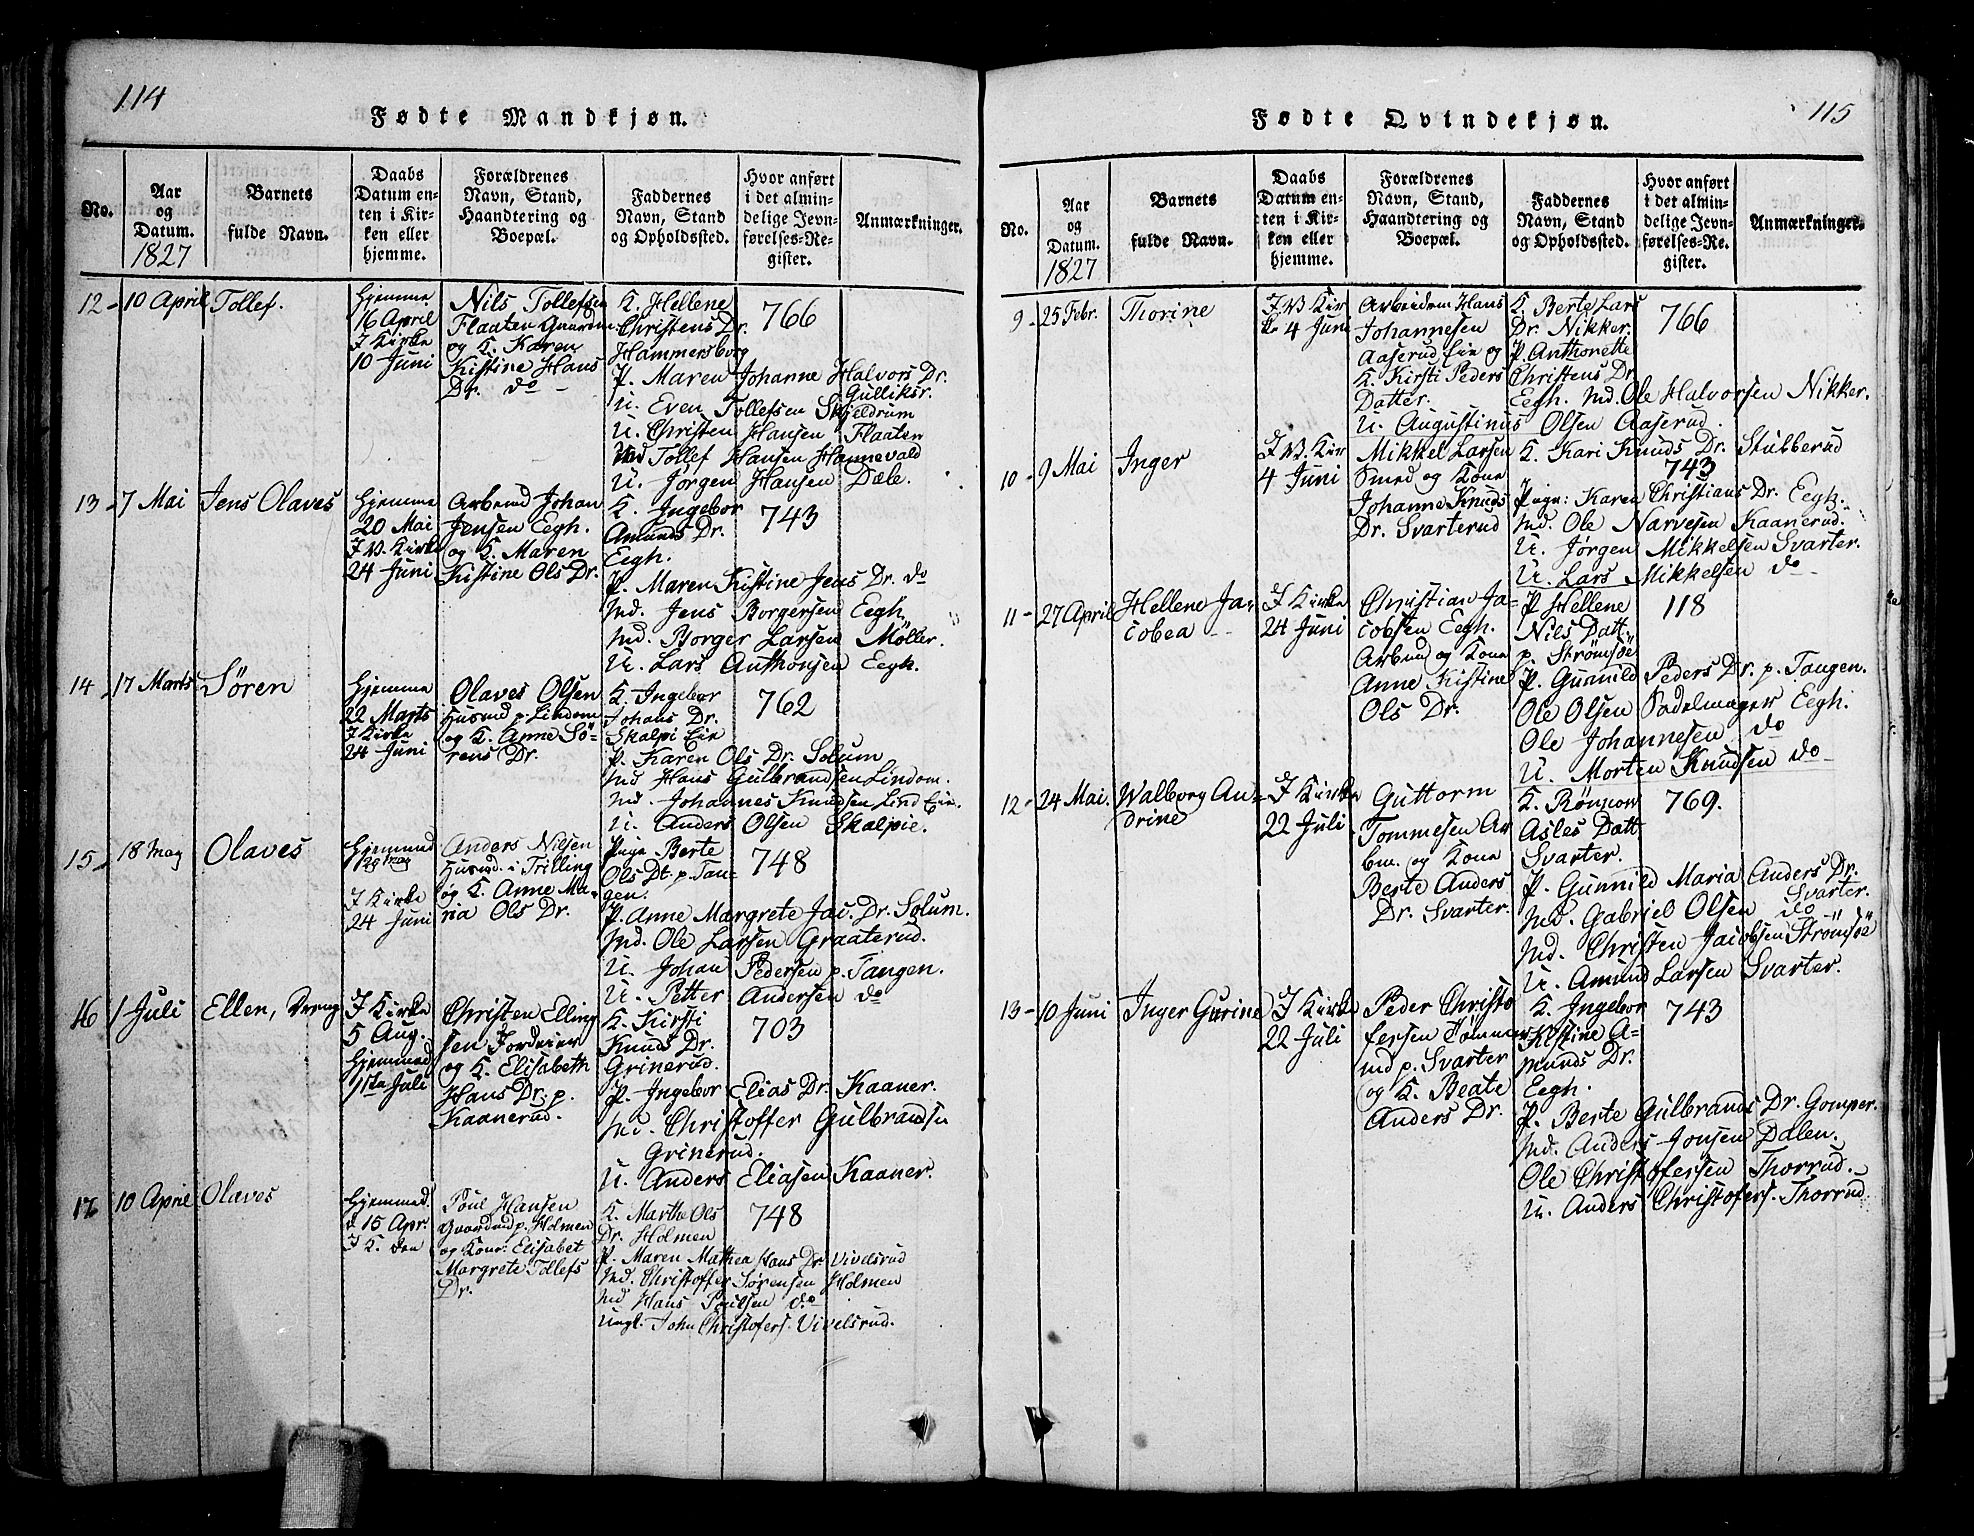 114
Fødte Mandkjøn.
No.
Aar
og
Datum.
1827
Barnets
fulde Navn.
Daabs
Datum en-
ten i Kir-
ken eller
hjemme.
Forældrenes
Navn, Stand,
Haandtering og
Boepæl.
Faddernes
Navn, Stand
og Opholdssted.
Hvor anført
i det almin-
delige Jevn-
førelses-Re-
gister.
Anmærkninger.
12 - 10 April
Tollef.
Hjemme
16 April
I Kirke
10 Juni
Nils Tollefsen
Flaaten Gaardm
og K. Karen
Kistine Hans
Dr. do -
K. Hellene
Christens Dr.
Hammersborg
P. Maren Johanne Halvors Dr.
Gulliksr.
U. Even Tollefsen Skjeldrum
U. Christen Hansen Flaaten
Md Tollef Hansen Hannevald
U. Jørgen Hansen Dæle.
766
13 - 7 Mai
Jens Olaves
Hjemme
20 Mai
I V. Kirke
24 Juni
Arbeud Johan
Jensen Eegh.
og K. Maren
Kistine Ols Dr.
K. Ingebor
Amunds Dr.
Eegh.
P. Maren Kistine Jens Dr. do
Md. Jens Borgersen Eegh.
Md. Borger Larsen Møller.
U. Lars Anthonsen Eegh.
743
14 - 17 Marts
Søren
Hjemme
22 Marts
I Kirke
24 Juni
Olaves Olsen
Husmd p. Lindom
og K. Anne Sö-
rens Dr.
K. Ingebor
Johans Dr.
Skalpi Eie
P. Karen Ols Dr. Solum
Md Hans Gulbrandsen Lindom.
Md. Johannes Knudsen Lind Eie.
U. Anders Olsen Skalpie.
762
15 - 18 May
Olaves
Hjemmed
20 May
I Kirke
24 Juni
Anders Nilsen
Husmd. i Trilling
og K. Anne Ma-
ria Ols Dr.
Pige Berte
Ols Dt. p. Tan-
gen.
P. Anne Margrete Jac. Dr. Solum.
Md. Ole Larsen Graaterud.
U. Johan Pedersen p. Tangen.
U. Petter Andersen do
748
16 1 Juli
Ellen, Dreng
I Kirke
5 Aug.
Hjemmed
11te Juli
Christen Elling
sen Jordeier
og K. Elisabeth
Hans Dr. p.
Kaanerud.
K. Kirsti
Knuds Dr.
Grinerud.
P. Ingebor Elias Dr. Kaaner.
Md. Christoffer Gulbrandsen
Grinerud.
U. Anders Eliasen Kaaner.
703
17. 10 April
Olaves
Hjemmed
d 15 Apr.
I K. den
Poul Hansen
Gaardmd p. Holmen
og Kone: Elisabet
Margrete Tollefs
Dr.
K. Marthe Ols
Dr. Holmen
P. Maren Mathea Hans Dr. Vivelsrud
Md. Christoffer Sørensen Holmen
Md Hans Poulsen do
Ungk. John Christofers. Vivelsrud.
748
115
Fødte Qvindekjøn.
No.
Aar
og
Datum.
1827
Barnets
fulde Navn.
Daabs
Datum en-
ten i Kir-
ken eller
hjemme.
Forældrenes
Navn, Stand,
Haandtering og
Boepæl.
Faddernes
Navn, Stand
og Opholdssted.
Hvor anført
i det almin-
delige Jevn-
førelses-Re-
gister.
Anmærkninger.
9 - 25 Febr.
Thorine
I V. Kir
ke 4 Juni
Arbeidsm Hans
Johannesen
Aaserud Eie og
K. Kirsti Peders
Datter.
K. Berte Lars
Dr. Nikker.
P. Anthonette
Christens Dr
Eegh. Md. Ole Halvorsen Nikker.
U. Augustinus Olsen Aaserud.
766
10 - 9 Mai
Inger
I V. Kir
4 Juni
Mikkel Larsen
Smed og Kone
Johanne Knuds
Dr. Svarterud
K. Kari Knuds Dr. Stubberud
743
Pige: Karen Christians Dr. Eegh.
Md. Ole Narvesen Kaanerud.
U. Jørgen Mikkelsen Svarter.
U. Lars Mikkelsen do
11 - 27 April
Hellene Ja-
cobea
I Kirke
24 Juni
Christian Ja-
cobsen Eegh.
Arbmd og Kone
Anne Kistine
Ols Dr.
P Hellene
Nils Datt.
p. Strömsöe
P. Gunnild Peders Dr. p. Tangen.
Ole Olsen Sadelmager Eegh.
Ole Johannesen do
U. Morten Knudsen do
118
12 - 24 Mai.
Walborg An-
drine
I Kirke
22 Juli
Guttorm
Tommesen Ar
bm. og Kone
Berte Anders
Dr. Svarter.
K. Rönnow
Asles Datt
Svarter.
P. Gunnild Maria Anders Dr.
Svarter.
Md. Gabriel Olsen do
Md. Christen Jacobsen Strömsöe
U. Amund Larsen Svarter.
769.
13 - 10 Juni
Inger Gurine
I Kirke
22 Juli
Peder Christo
fersen Tömmer
md p. Svarter
og K. Beate
Anders Dr.
K. Ingebor
Kistine A-
munds Dr.
Eegh.
P. Berte Gulbrands Dr. Gomper.
Md. Anders Jonsen Dalen.
Ole Christofersen Thorrud.
U. Anders Christofers. Thorrud
743